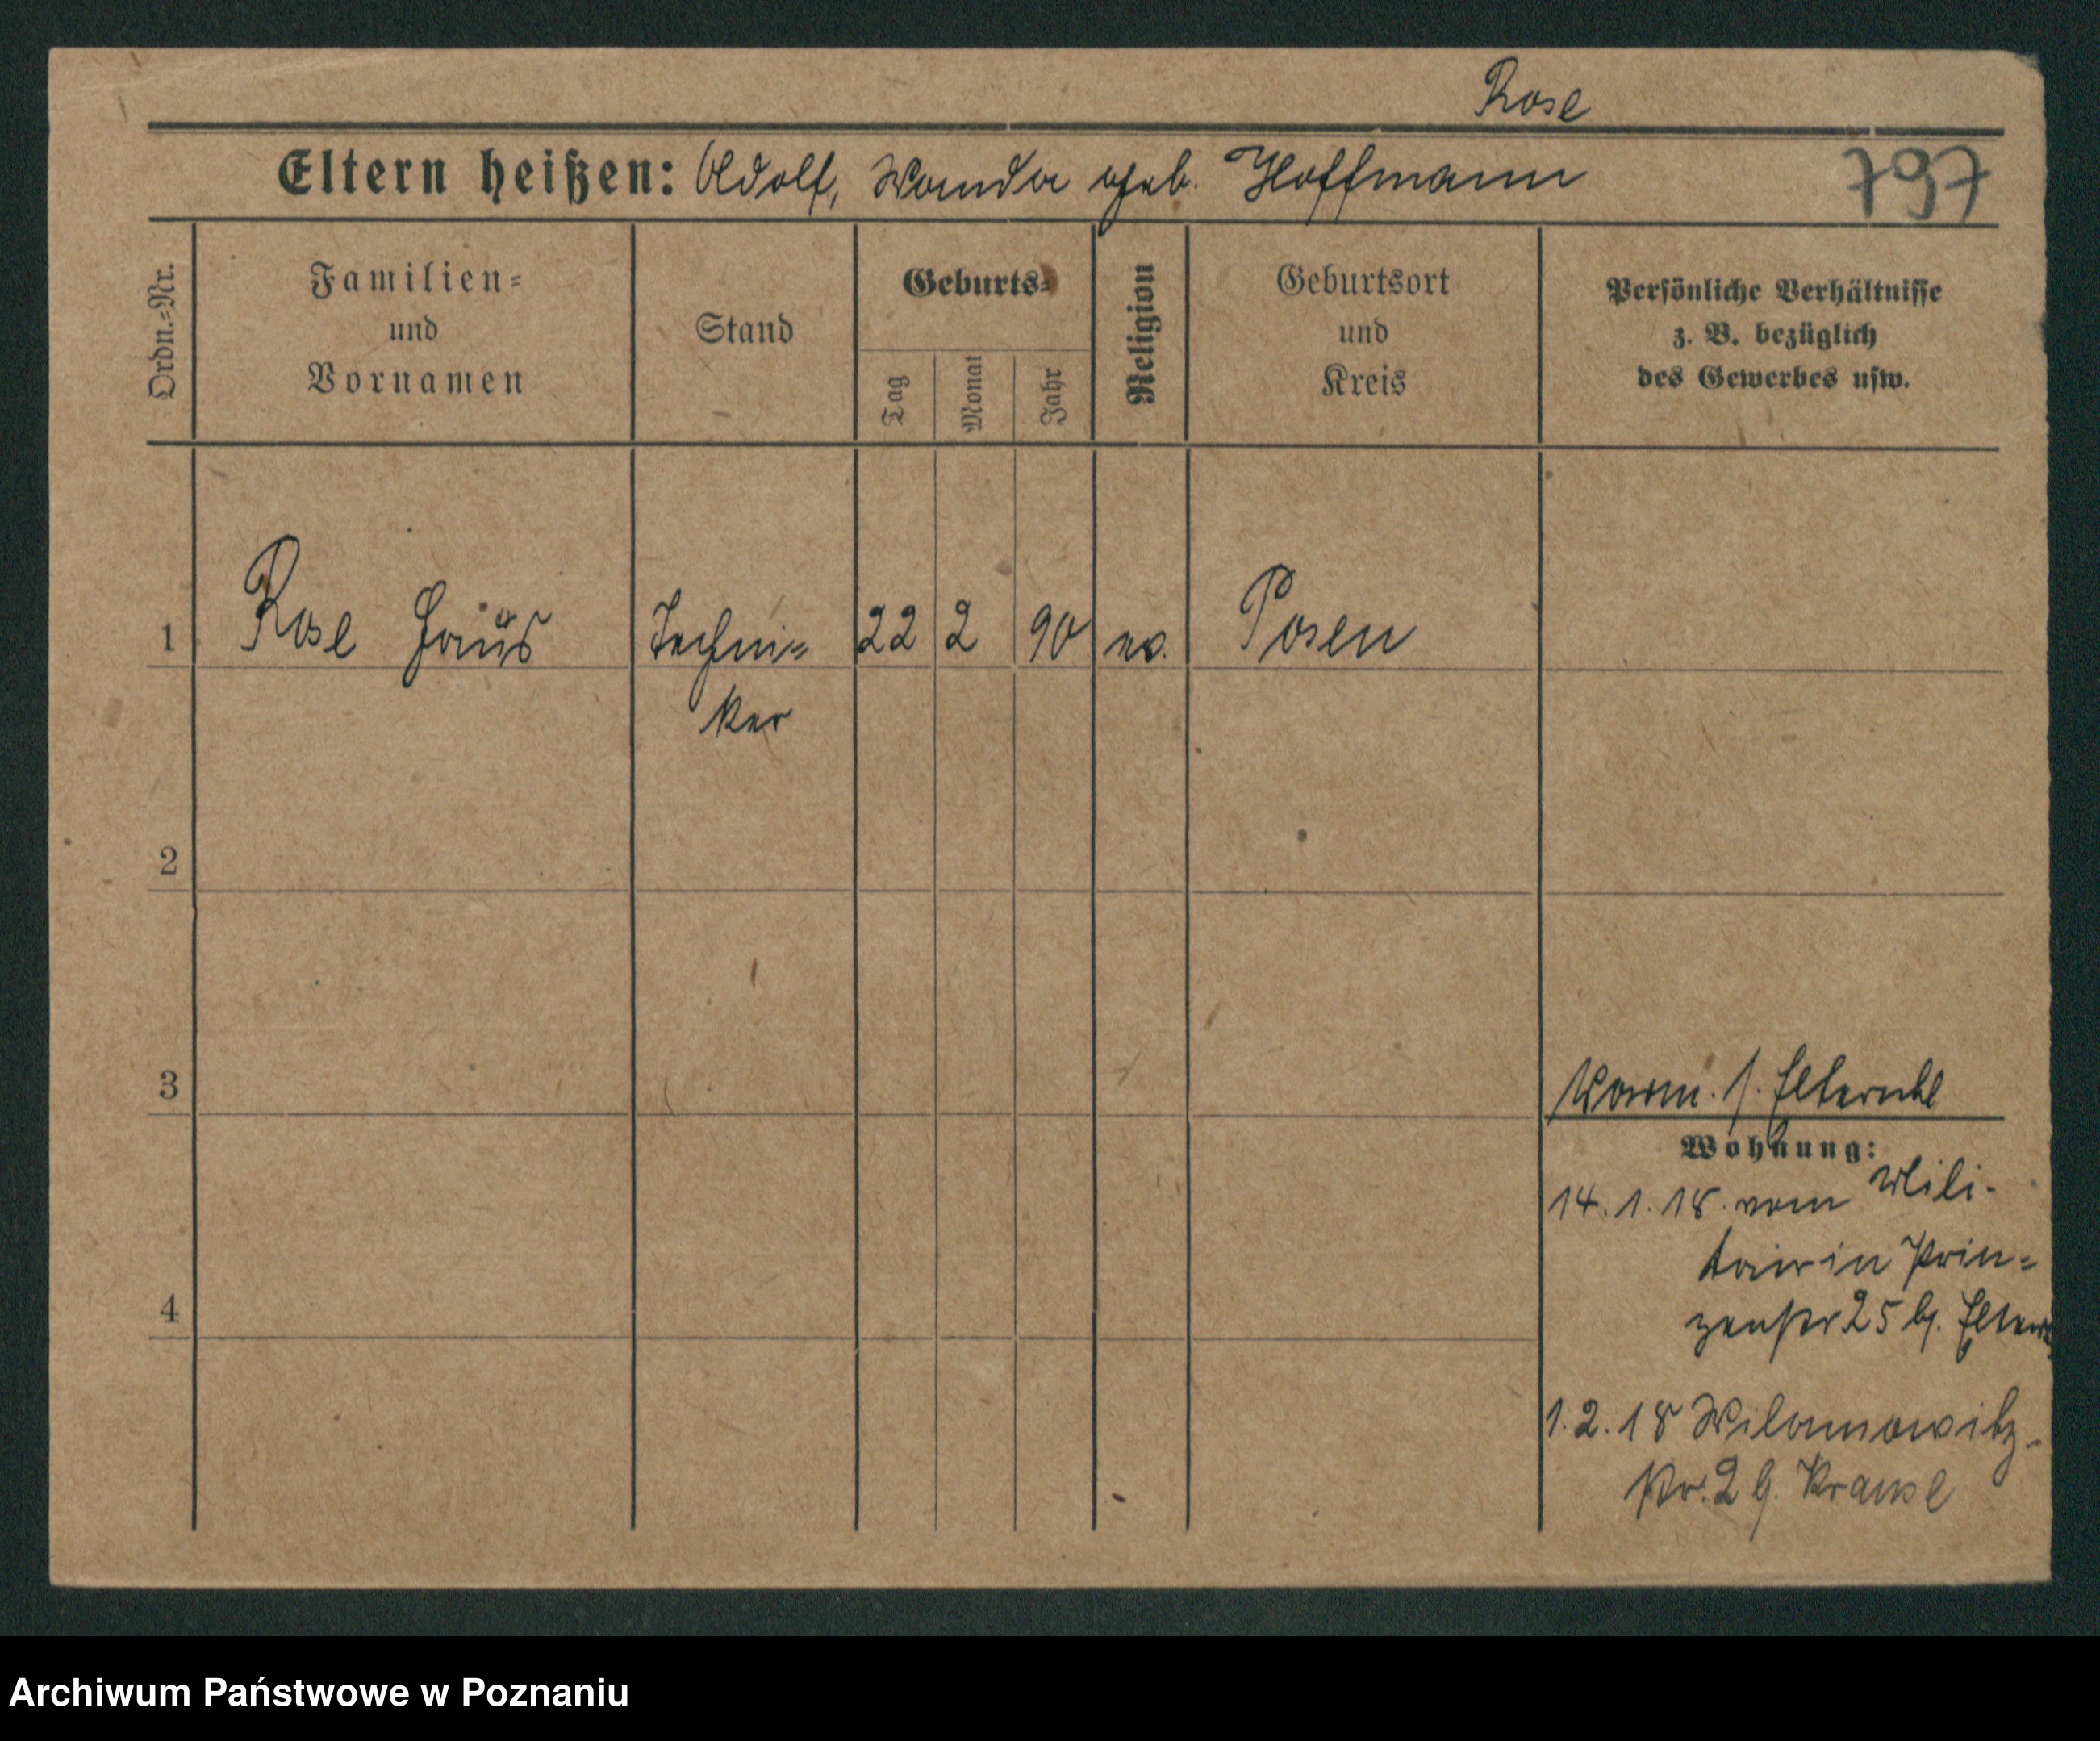 Rose
Eltern heißen: Adolf, Wanda geb. Hoffmann
797
Ordn.-Nr.
Familien-
und
Vornamen
Stand
Geburts-
Tag
Monat
Jahr
Religion
Geburtsort
und
Kreis
Persönliche Verhältnisse
z. B. bezüglich
des Gewerbes usw.
1 Rose Techni- 22 2 90 ev. Posen
ker
2
3
Vorm. s.
Wohnung:
14.1.18. vom Mili-
tair in Prin-
zenstr 25 b. Eltern
4
1.2.18 Wilamowitz-
str. 2 b. Krause
Archiwum Państwowe w Poznaniu